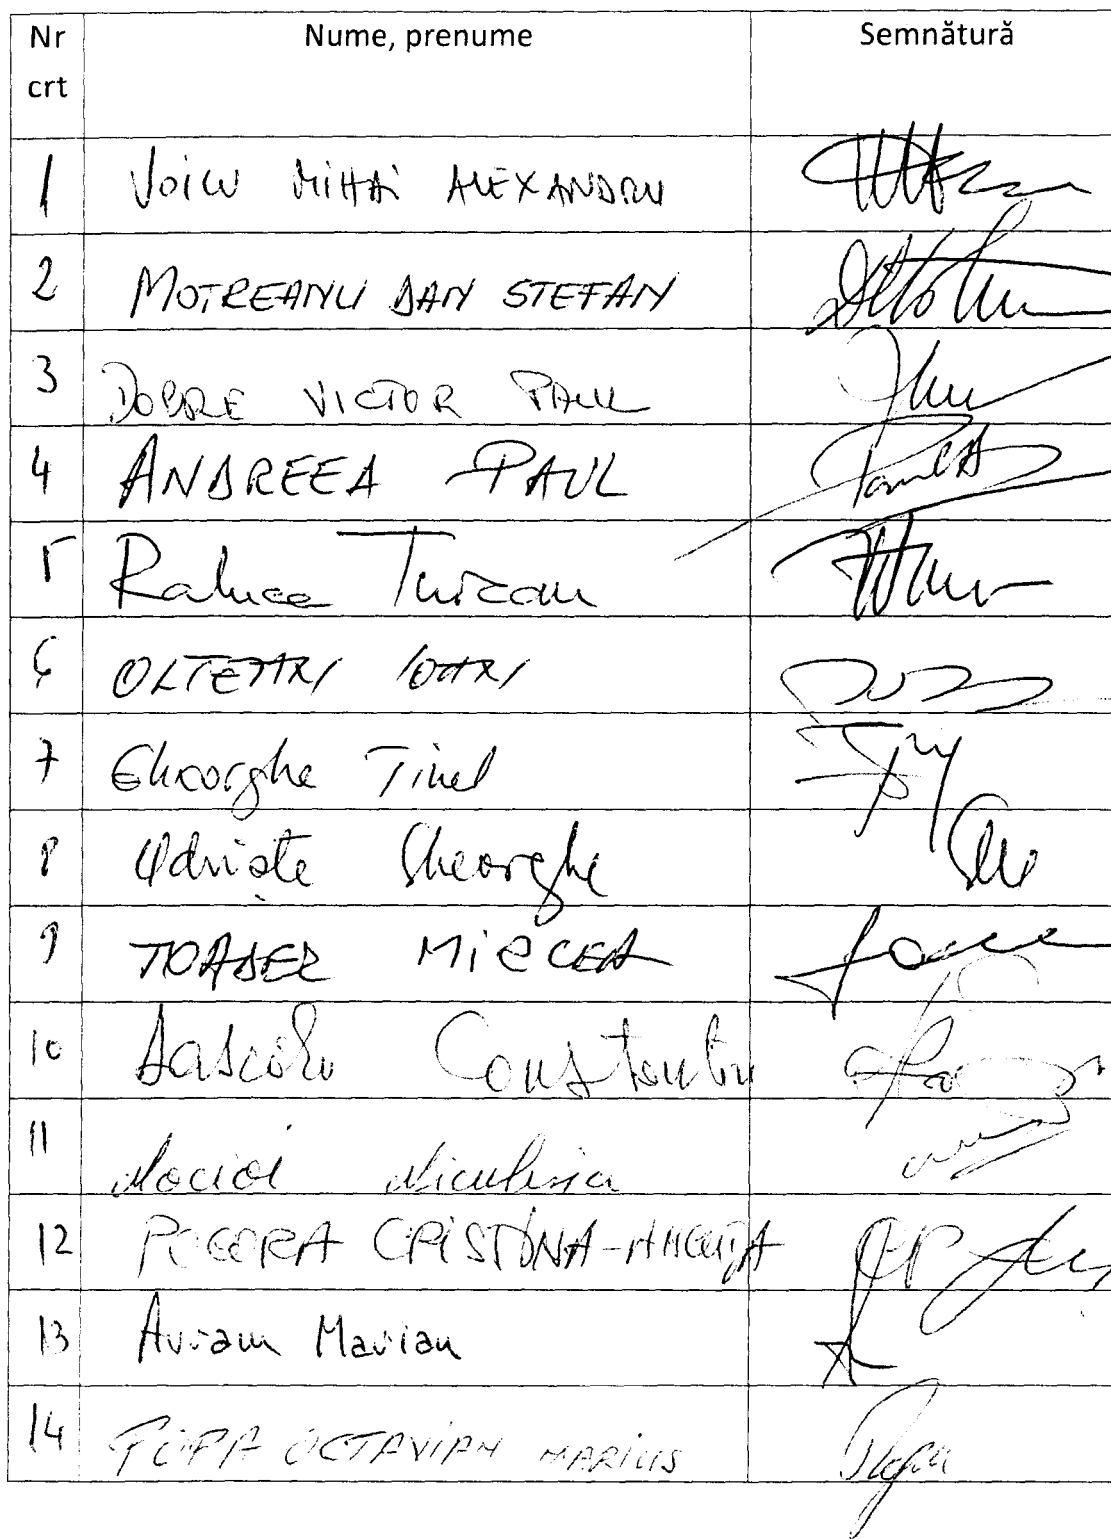 Nr crt Nume, prenume Semnătură
1 VOICU MIHAI ALEXANDRU
2 MOTREANU DAN STEFAN
3 DOBRE VICTOR PAUL
4 ANDREEA PAUL
5 Raluca Turcan
6 OLTEAN IOAN
7 Gheorghe Tinel
8 Udriște Gheorghe
9 TOADER MIRCEA
10 Dascălu Constantin
11 Mocioi Niculina
12 POCORA CRISTINA-ANCUȚA
13 Avram Marian
14 POPA OCTAVIAN MARIUS